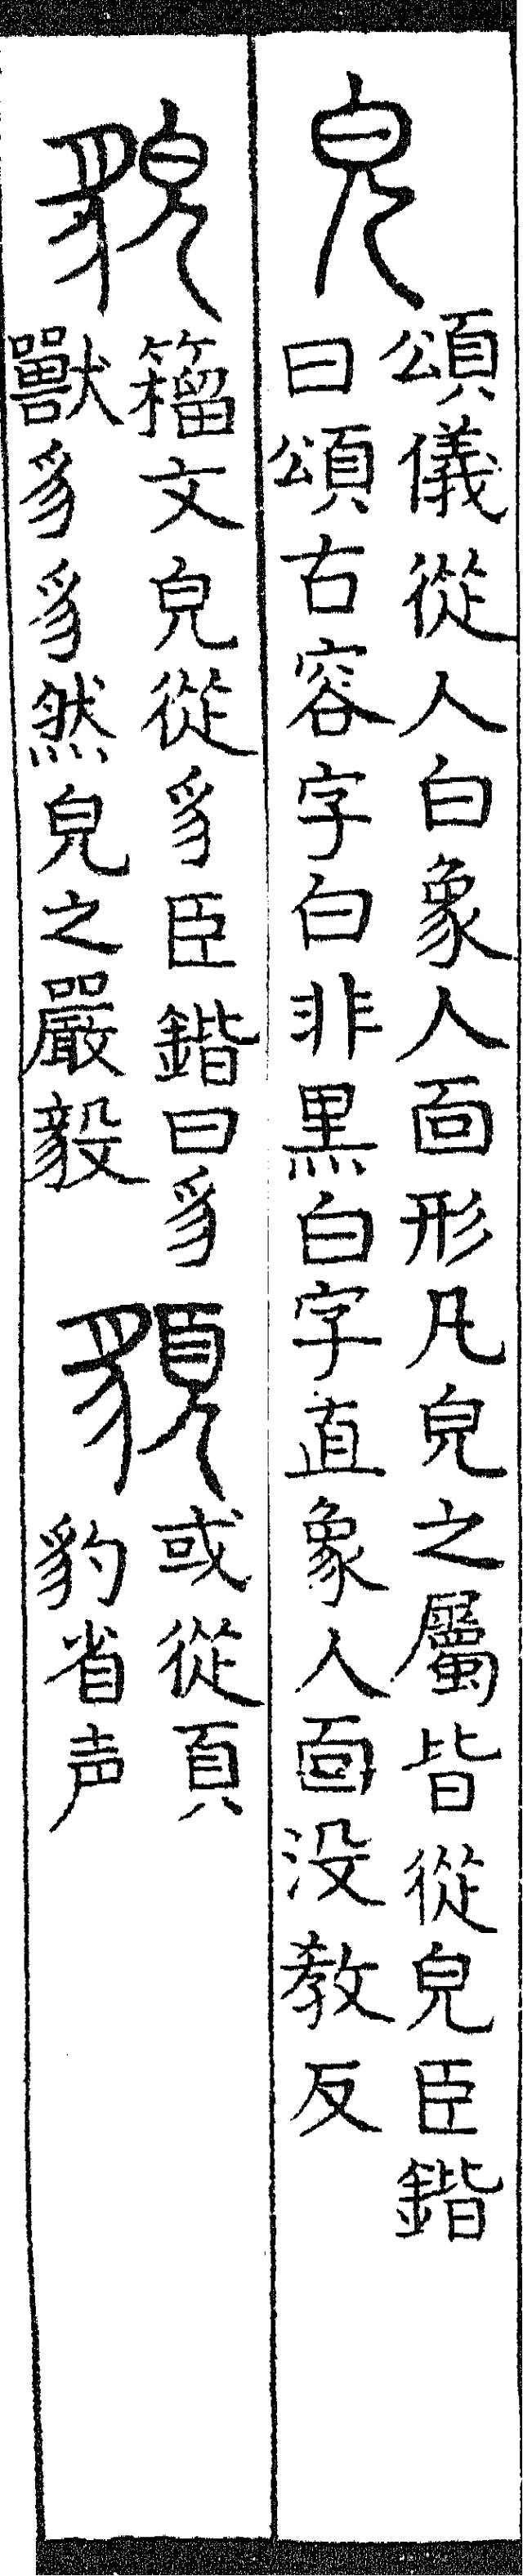 皃
頌儀從人白象人面形凡皃之屬皆從皃臣鍇
曰頌古容字白非黒白字直象人面没教反
貌
籒文皃從豸臣鍇曰豸
獸豸豸然皃之嚴毅
䫉
或從頁
豹省声